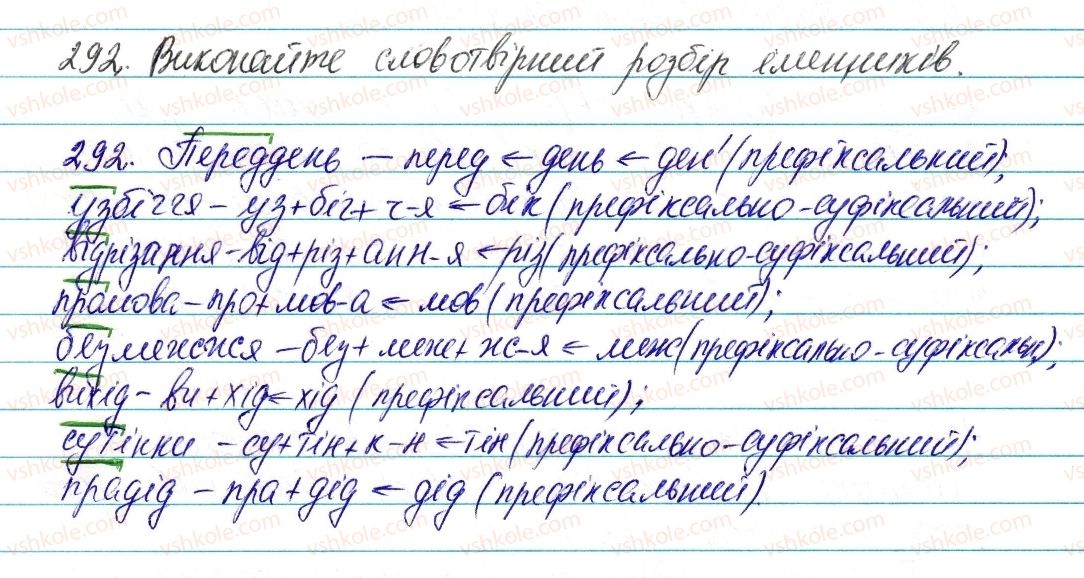 292. Виконайте словотвірний розбір іменників.
292. Переддень – перед ← день ← ден' (префіксальний);
узбіччя – уз+біч+ч-я ← бік (префіксально-суфіксальний);
відрізання – від+різ+анн-я ← різ (префіксально-суфіксальний);
промова – про+мов-а ← мов (префіксальний);
безмежжя – без+меж+ж-я ← меж (префіксально-суфіксальн.);
вихід – ви+хід ← хід (префіксальний);
сутінки – су+тін+к-и ← тін (префіксально-суфіксальний);
прадід – пра+дід ← дід (префіксальний).